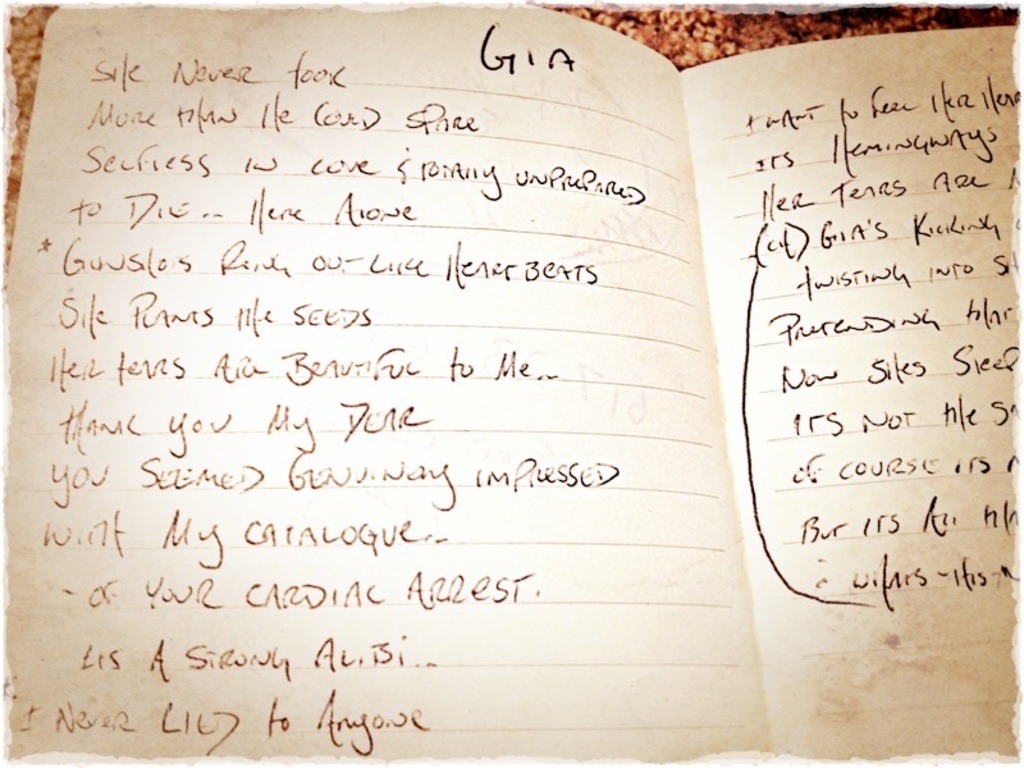 GIA
She Never took
More than He Could spare
Selfless in love & totally unprepared
to Die.. Here Alone
* Gunshots Ring out like Heartbeats
She Plants the seeds
Her tears are Beautiful to Me..
Thank you My Dear
you seemed Genuinely impressed
with My catalogue..
- of your cardiac arrest.
its A strong Alibi..
I Never LIED to Anyone
I want to feel Her
its Hemingways
Her tears are
(ch) Gia's Kicking
twisting into
Pretending that
Now shes
its not the
of course its
But its All
& whats - his -